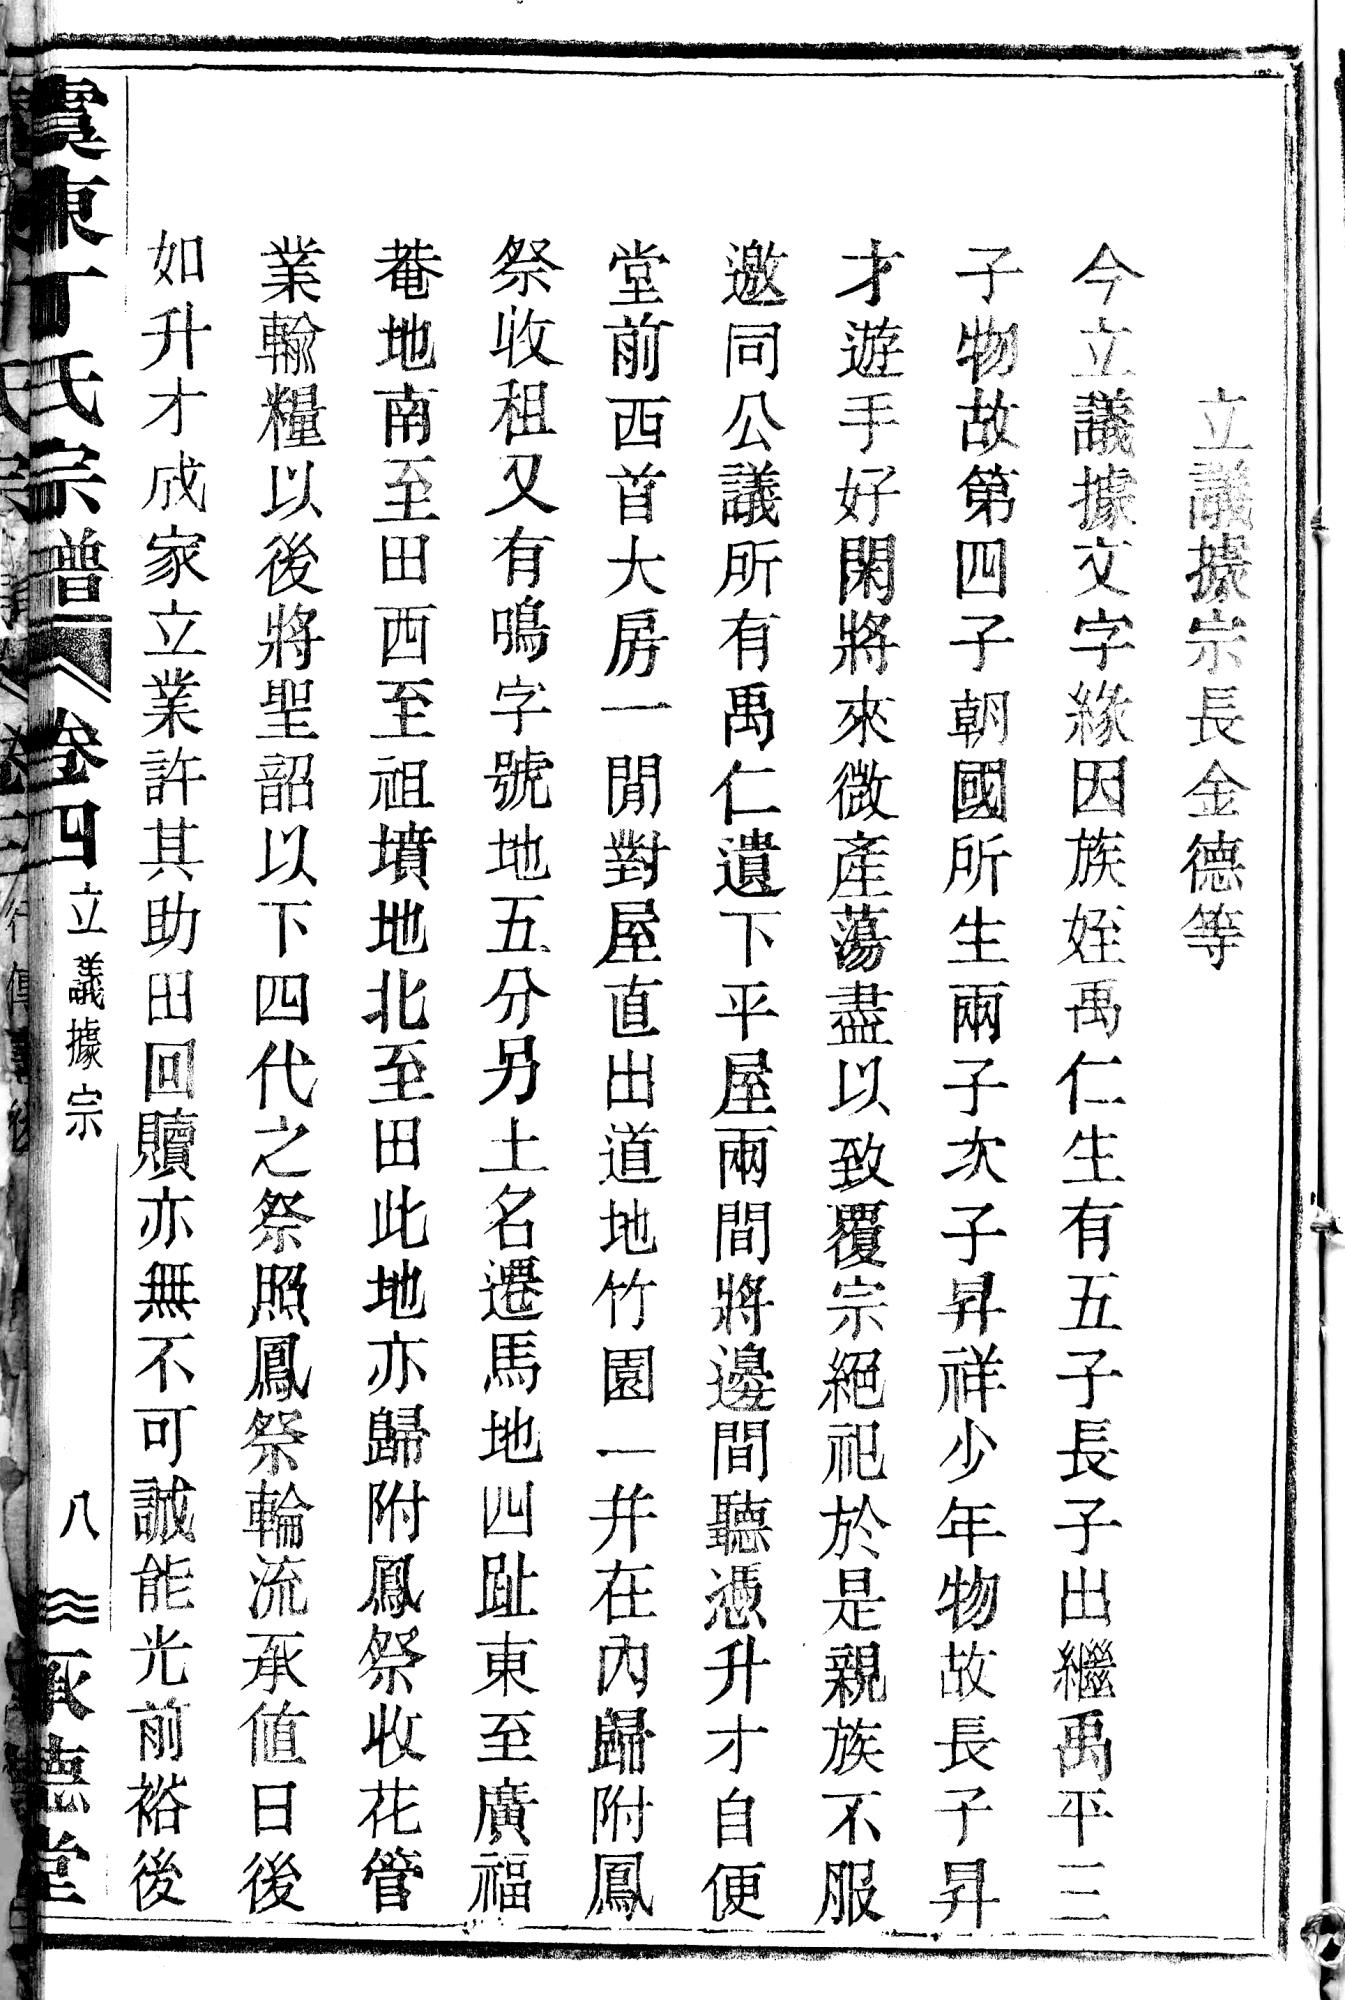 立議據宗長金德等
今立議據文字緣因族姪禹仁生有五子長子出繼禹平三
子物故第四子朝國所生兩子次子昇祥少年物故長子昇
才遊手好閑將來微產蕩盡以致覆宗絕祀於是親族不服
邀同公議所有禹仁遺下平屋兩間將邊間聽憑升才自便
堂前西首大房一間對屋直出道地竹園一并在內歸附鳳
祭收租又有鳴字號地五分另土名遷馬地四趾東至廣福
菴地南至田西至祖墳地北至田此地亦歸附鳳祭收花管
業輸糧以後將聖韶以下四代之祭照鳳祭輪流承值日後
如升才成家立業許其助田回贖亦無不可誠能光前裕後
虞東丁氏宗譜 卷四 立議據宗 八 承德堂